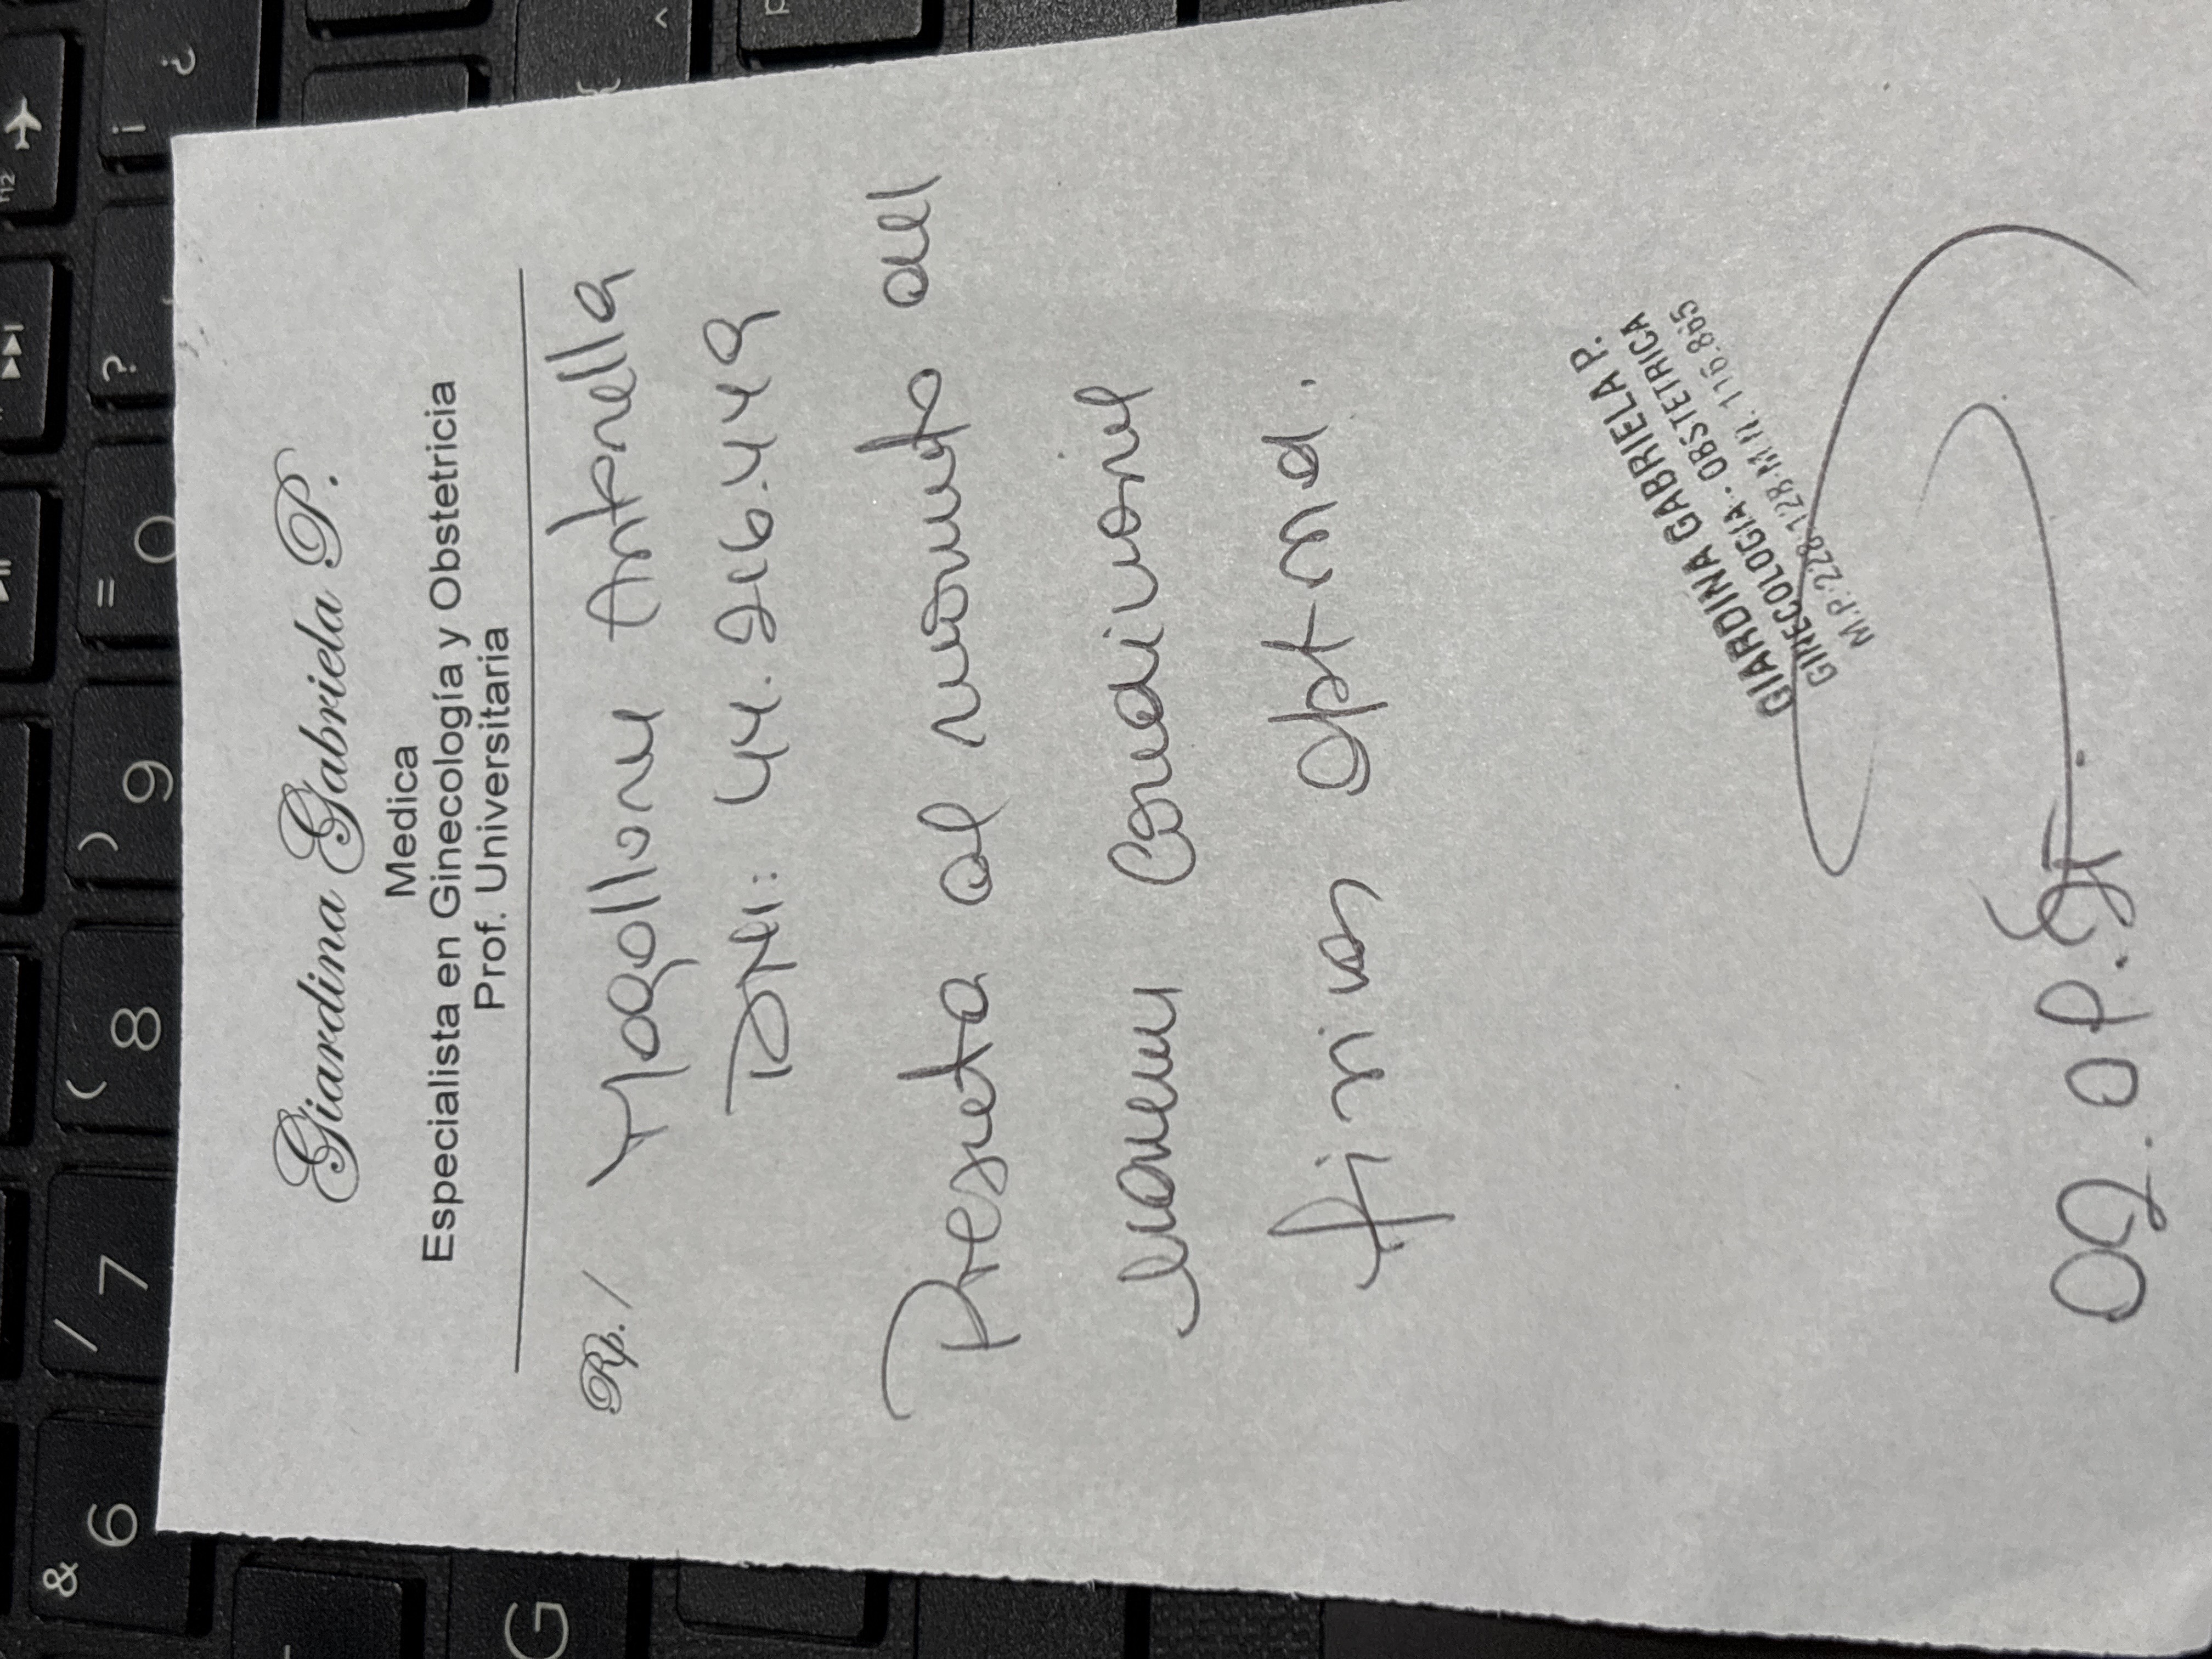 Giardina Gabriela P.
Medica
Especialista en Ginecología y Obstetricia
Prof. Universitaria
Rp. / Magallanes Antonella
DNI: 44.266.449
Presenta al momento del
examen Condiciones
físicas Optma.
GIARDINA GABRIELA P.
GINECOLOGIA - OBSTETRICA
M.P. 228.128 - M.N. 116.865
& 6
/ 7
( 8
) 9
= 0
? 
¡ ¿
G